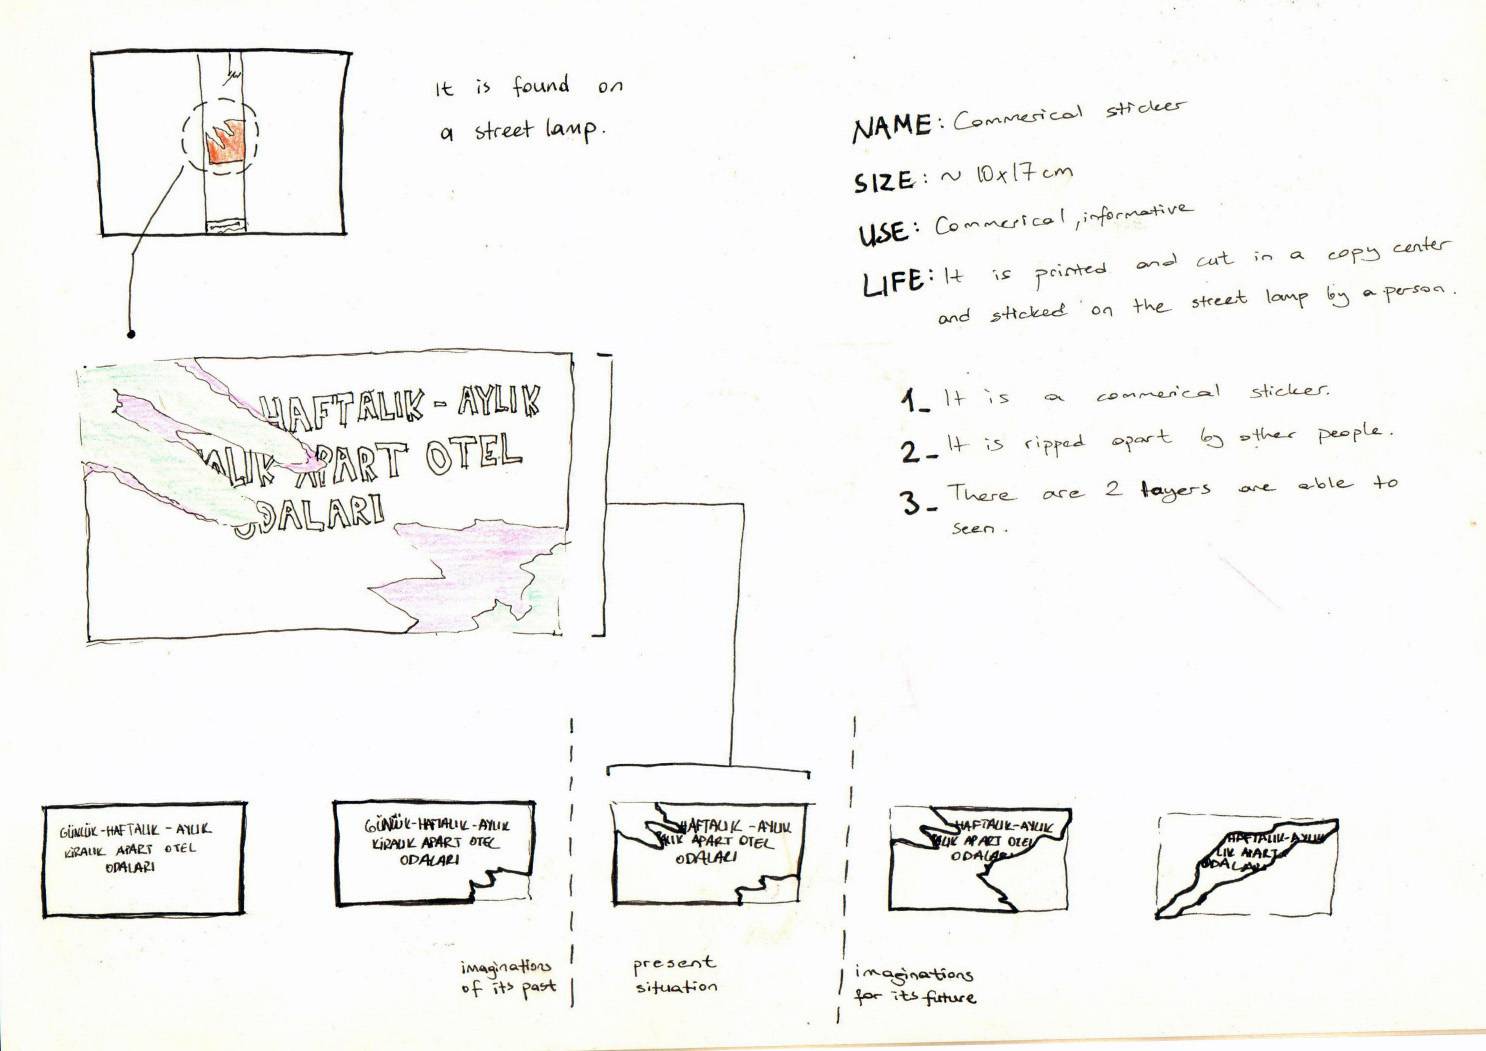 It is found on
a street lamp.
NAME: Commerical sticker
SIZE: ~ 10x17cm
USE: Commerical, informative
LIFE: It is printed and cut in a copy center
and sticked on the street lamp by a person.
1- It is a commerical sticker.
2- It is ripped apart by other people.
3- There are 2 layers are able to
seen.
HAFTALIK - AYLIK
ALIK APART OTEL
ODALARI
GÜNLÜK-HAFTALIK - AYLIK
KİRALIK APART OTEL
ODALARI
GÜNLÜK-HAFTALIK-AYLIK
KİRALIK APART OTEL
ODALARI
HAFTALIK - AYLIK
ALIK APART OTEL
ODALARI
HAFTALIK-AYLIK
ALIK APART OTEL
ODALARI
HAFTALIK-AYLIK
LIK APART
ODALARI
imaginations
of its past
present
situation
imaginations
for its future